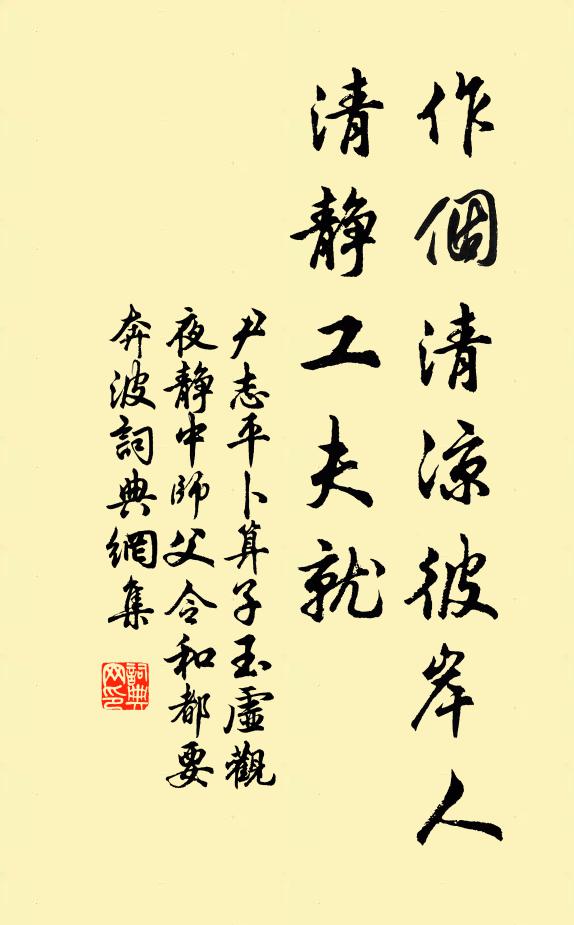 作個清涼彼岸人
清靜工夫就
尹志平卜算子玉虛觀
夜靜中師父令和都要
奔波詞典網集
詞典
网印